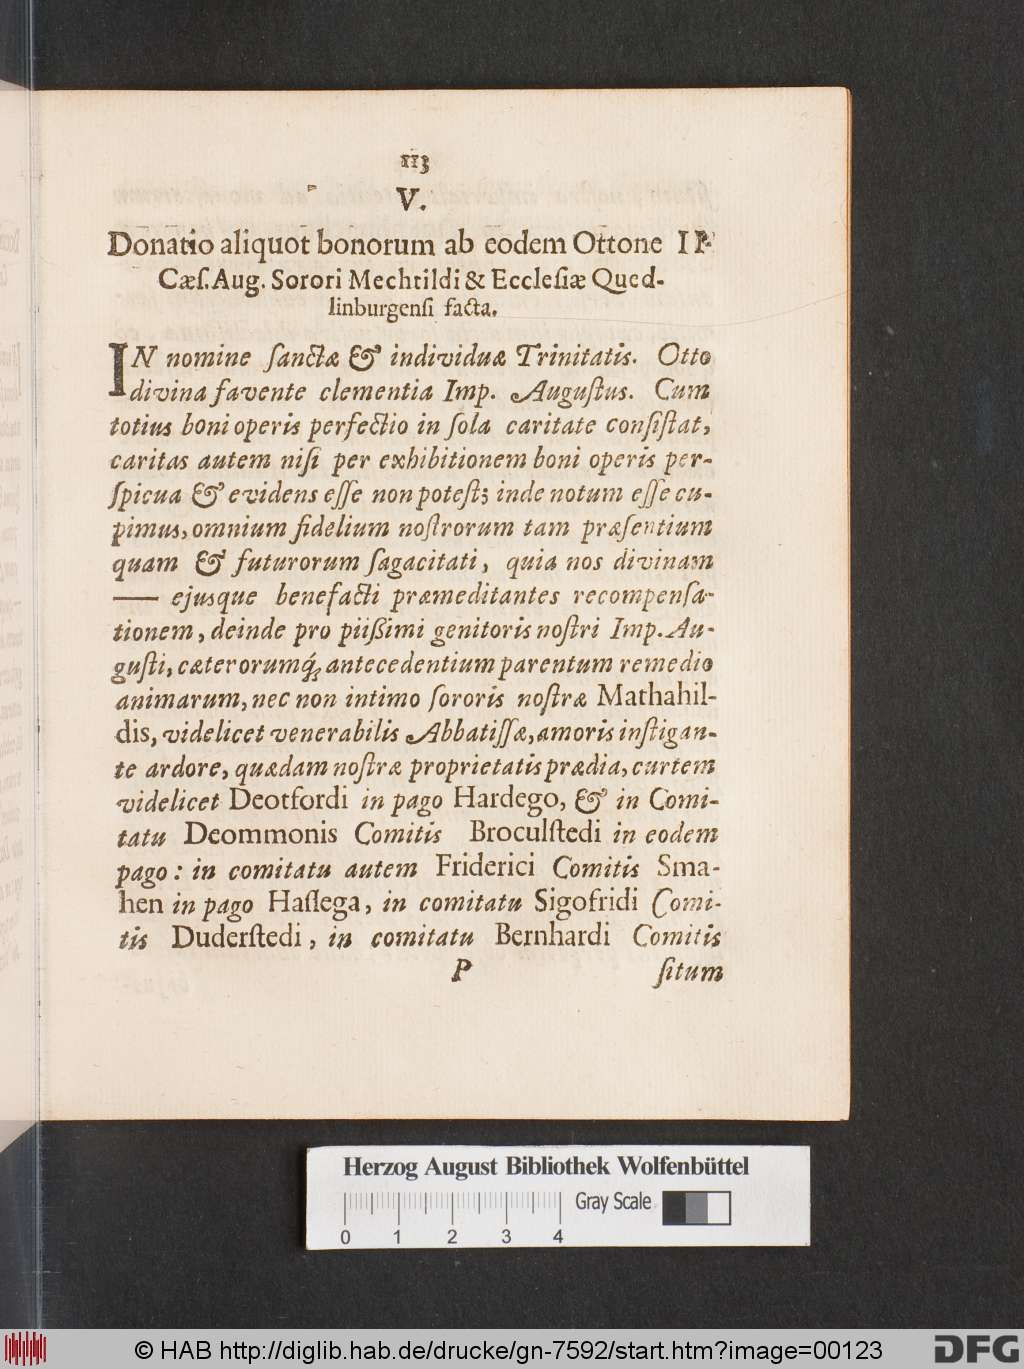 113
V.
Donatio aliquot bonorum ab eodem Ottone II.
Cæſ. Aug. Sorori Mechtildi & Eccleſiæ Qued-
linburgenſi facta.
IN nomine ſanctæ & individuæ Trinitatis. Otto
divina favente clementia Imp. Auguſtus. Cum
totius boni operis perfectio in ſola caritate conſiſtat,
caritas autem niſi per exhibitionem boni operis per-
ſpicua & evidens eſſe non poteſt; inde notum eſſe cu-
pimus, omnium fidelium noſtrorum tam præſentium
quam & futurorum ſagacitati, quia nos divinam
—— ejusque benefacti præmeditantes recompenſa-
tionem, deinde pro piißimi genitoris noſtri Imp. Au-
guſti, cæterorumq́; antecedentium parentum remedio
animarum, nec non intimo ſororis noſtræ Mathahil-
dis, videlicet venerabilis Abbatiſſæ, amoris inſtigan-
te ardore, quædam noſtræ proprietatis prædia, curtem
videlicet Deotfordi in pago Hardego, & in Comi-
tatu Deommonis Comitis Broculſtedi in eodem
pago: in comitatu autem Friderici Comitis Sma-
hen in pago Haſlega, in comitatu Sigofridi Comi-
tis Duderſtedi, in comitatu Bernhardi Comitis
P ſitum
Herzog August Bibliothek Wolfenbüttel
Gray Scale
0 1 2 3 4
© HAB http://diglib.hab.de/drucke/gn-7592/start.htm?image=00123
DFG